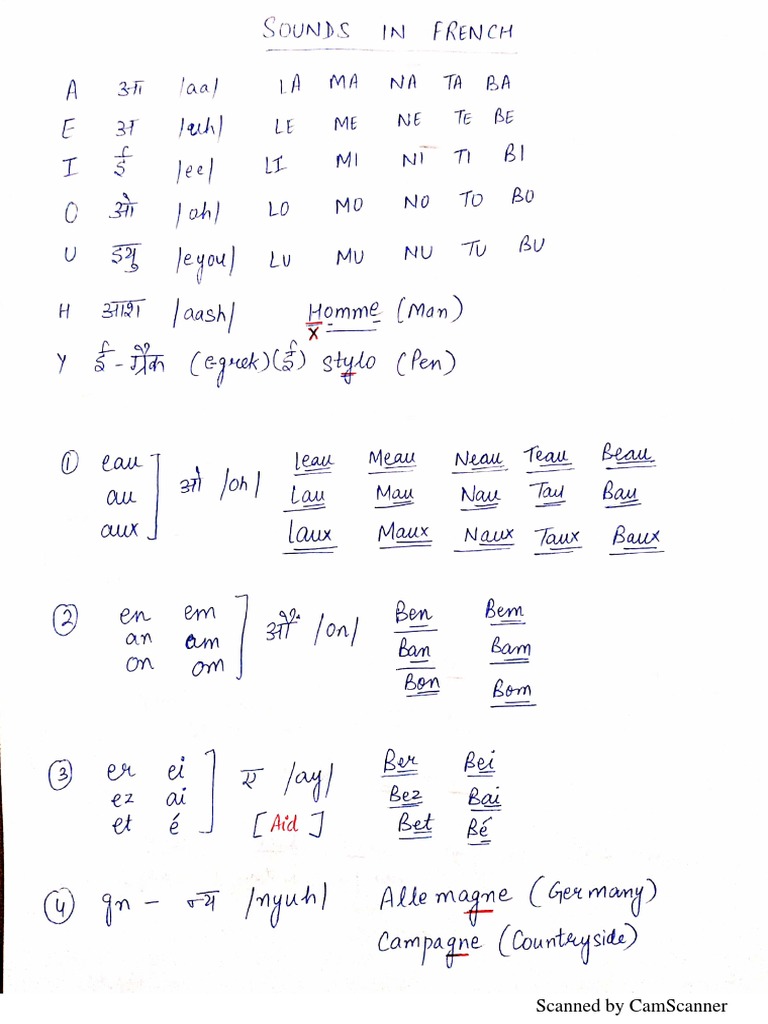 SOUNDS IN FRENCH
A आ /aa/ LA MA NA TA BA
E अ /euh/ LE ME NE TE BE
I ई /ee/ LI MI NI TI BI
O ओ /oh/ LO MO NO TO BO
U इयु /eyou/ LU MU NU TU BU
H आश /aash/ Homme (Man)
x
Y ई-ग्रेक (e-grek) (ई) stylo (Pen)
① eau Leau Meau Neau Teau Beau
au ओ /oh/ Lau Mau Nau Tau Bau
aux Laux Maux Naux Taux Baux
② en em Ben Bem
an am ओं /on/ Ban Bam
on om Bon Bom
③ er ei ए /ay/ Ber Bei
ez ai Bez Bai
et é [Aid] Bet Bé
④ gn - न्य /nyuh/ Allemagne (Germany)
Campagne (Countryside)
Scanned by CamScanner